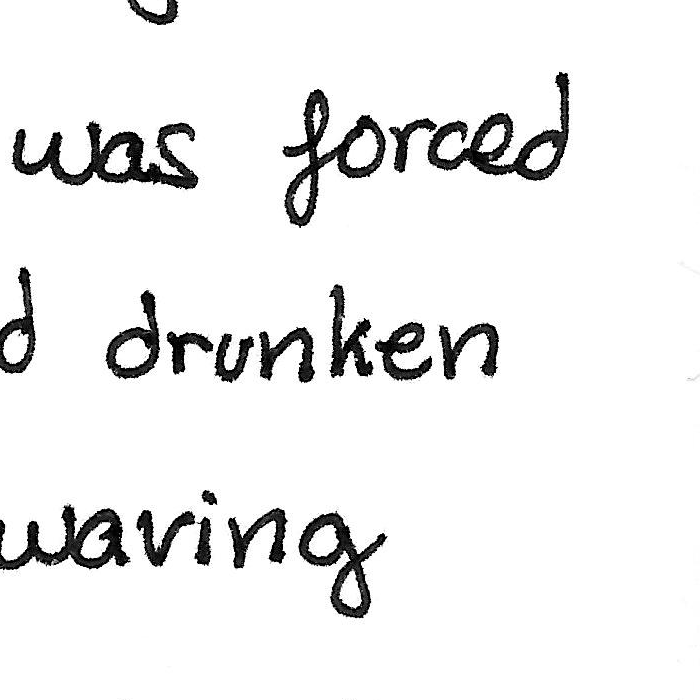 was forced
d drunken
waving